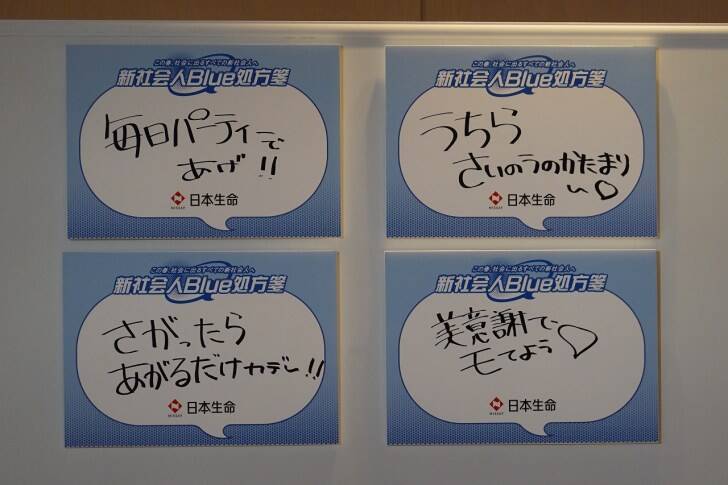 この春、社会に出るすべての新社会人へ
新社会人Blue処方箋
毎日パーティーで
あげ!!
NISSAY
日本生命
この春、社会に出るすべての新社会人へ
新社会人Blue処方箋
うちら
さいのうのかたまり
〜♡
NISSAY
日本生命
この春、社会に出るすべての新社会人へ
新社会人Blue処方箋
さがったら
あがるだけカデー!!
NISSAY
日本生命
この春、社会に出るすべての新社会人へ
新社会人Blue処方箋
美意謝で
モてよう♡
NISSAY
日本生命